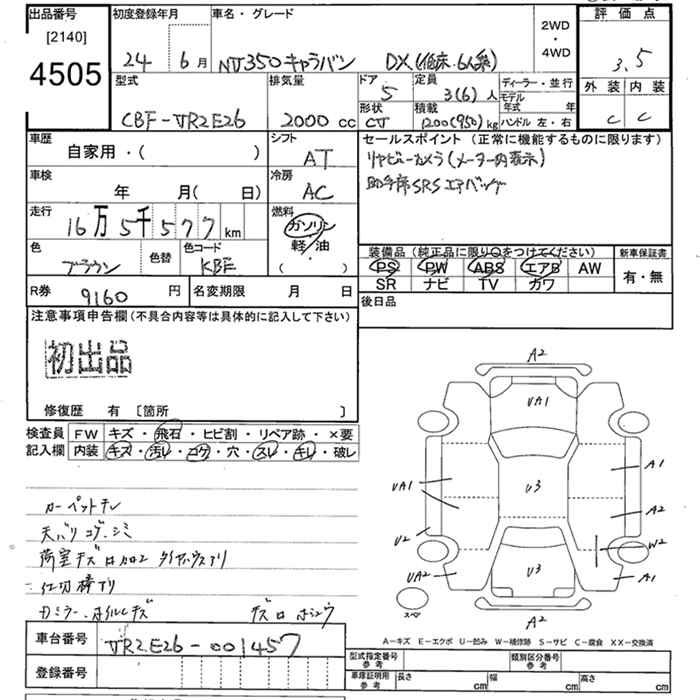 出品番号 初度登録年月 車名・グレード 2WD・4WD 評価点
[2140]
4505 24 6月 NV350キャラバン DX(低床・6人乗) 3.5
型式 排気量 ドア 定員 ディーラー・並行 外装 内装
CBF-VR2E26 2000cc 5 3(6)人 モデル年式 年
形状 積載 ハンドル 左・右
CV 1200(950)kg C C
車歴 シフト セールスポイント (正常に機能するものに限ります)
自家用・( ) AT リヤビューカメラ(メーター内表示)
車検 冷房 助手席SRSエアバッグ
年 月( 日) AC
走行 燃料
16万5千577km ガソリン
軽/油
( )
色 色替 色コード 装備品(純正品に限り○をつけてください) 新車保証書
ブラウン KBE PS PW ABS エアB AW 有・無
SR ナビ TV カワ
R券 9160円 名変期限 月 日 後日品
注意事項申告欄(不具合内容等は具体的に記入して下さい)
初出品
修復歴 有 [箇所 ]
検査員 FW キズ・飛石・ヒビ割・リペア跡・×要
記入欄 内装 キズ・汚レ・コゲ・穴・スレ・キレ・破レ
A2
UA1
A1
UA1 U3
A2
U2 W2
UA2 U3 A1
スペア A2
カーペットキレ
天バリコゲ・シミ
仕切棒アリ
A-キズ E-エクボ U-凹み W-補修跡 S-サビ C-腐食 XX-交換済
車台番号 VR2E26-001457
型式指定番号 参考 類別区分番号 参考
登録番号 車庫証明用 参考 長さ cm 幅 cm 高さ cm